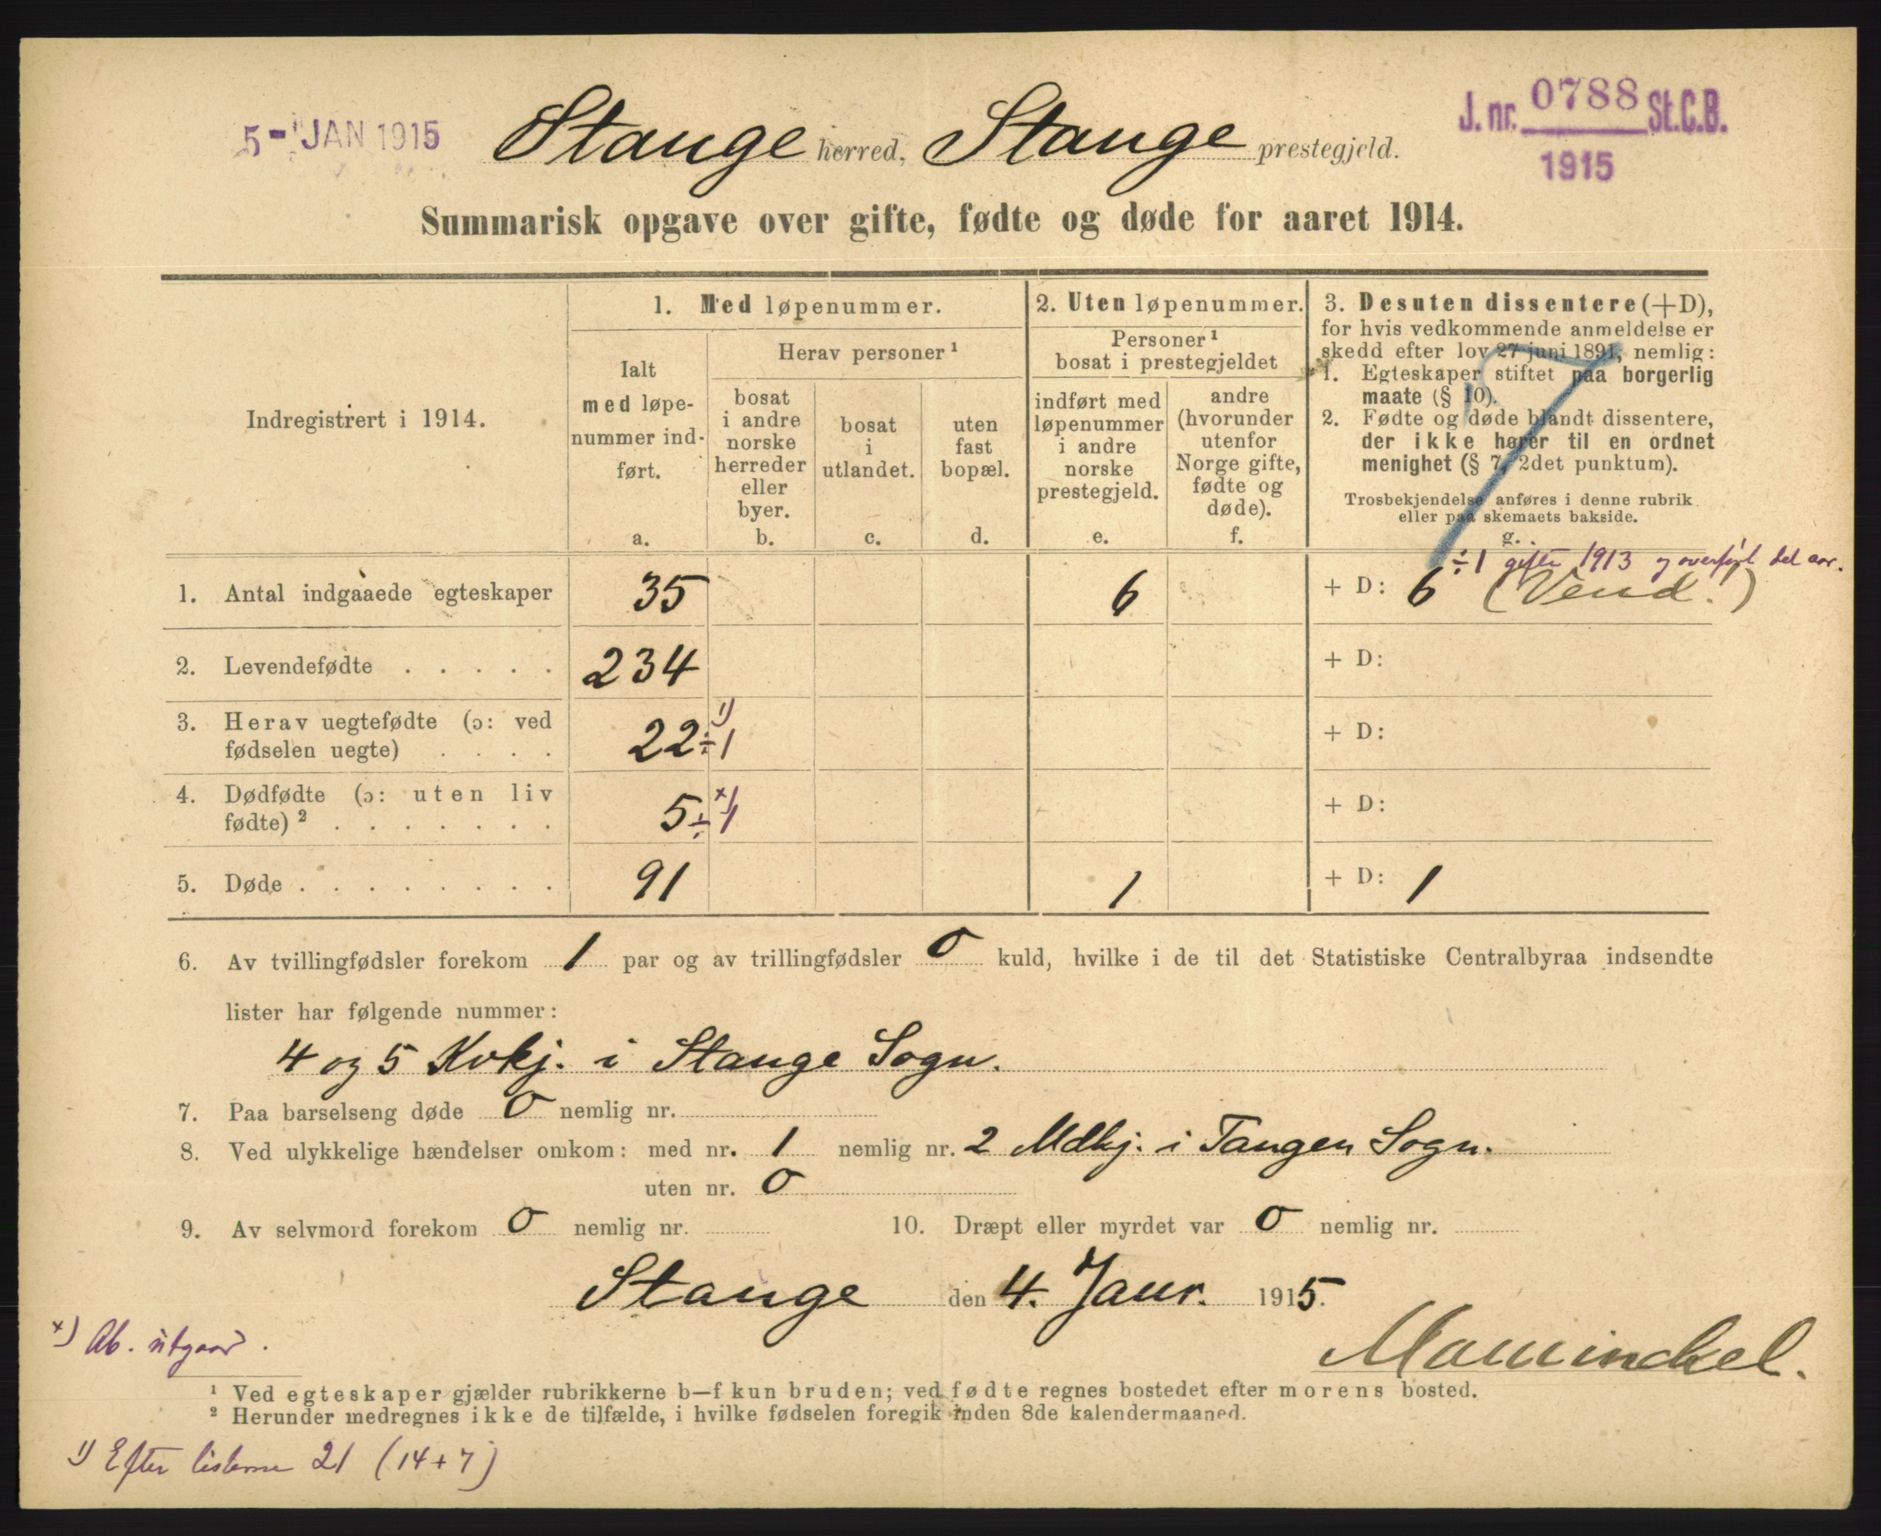 5 - JAN 1915
J. nr. 0788 St.C.B.
1915
Stange herred, Stange prestegjeld.
Summarisk opgave over gifte, fødte og døde for aaret 1914.
Indregistrert i 1914.
1. Med løpenummer.
Ialt
med løpe-
nummer ind-
ført.
a.
Herav personer ¹
bosat
i andre
norske
herreder
eller
byer.
b.
bosat
i
utlandet.
c.
uten
fast
bopæl.
d.
2. Uten løpenummer.
Personer ¹
bosat i prestegjeldet
indført med
løpenummer
i andre
norske
prestegjeld.
e.
andre
(hvorunder
utenfor
Norge gifte,
fødte og
døde).
f.
3. Desuten dissentere (+D),
for hvis vedkommende anmeldelse er
skedd efter lov 27 juni 1891, nemlig:
1. Egteskaper stiftet paa borgerlig
maate (§ 10).
2. Fødte og døde blandt dissentere,
der ikke hører til en ordnet
menighet (§ 7, 2det punktum).
Trosbekjendelse anføres i denne rubrik
eller paa skemaets bakside.
g.
÷1 gifte 1913 og overført det aar.
1. Antal indgaaede egteskaper 35 6 + D: 6 (Vend.)
2. Levendefødte . . . . . 234 + D:
3. Herav uegtefødte (ɔ: ved
fødselen uegte) . . . . 22 ÷1 ¹) + D:
4. Dødfødte (ɔ: uten liv
fødte) ² . . . . . . . 5 ÷1 ˣ) + D:
5. Døde . . . . . . . . 91 1 + D: 1
6. Av tvillingfødsler forekom 1 par og av trillingfødsler 0 kuld, hvilke i de til det Statistiske Centralbyraa indsendte
lister har følgende nummer:
4 og 5 Kvkj. i Stange Sogn.
7. Paa barselseng døde 0 nemlig nr.
8. Ved ulykkelige hændelser omkom: med nr. 1 nemlig nr. 2 Mdkj. i Tangen Sogn.
uten nr. 0
9. Av selvmord forekom 0 nemlig nr.
10. Dræpt eller myrdet var 0 nemlig nr.
Stange den 4. Janr. 1915.
ˣ) Ab. utgaar.
¹ Ved egteskaper gjælder rubrikkerne b—f kun bruden; ved fødte regnes bostedet efter morens bosted.
² Herunder medregnes ikke de tilfælde, i hvilke fødselen foregik inden 8de kalendermaaned.
¹) Efter listerne 21 (14 + 7)